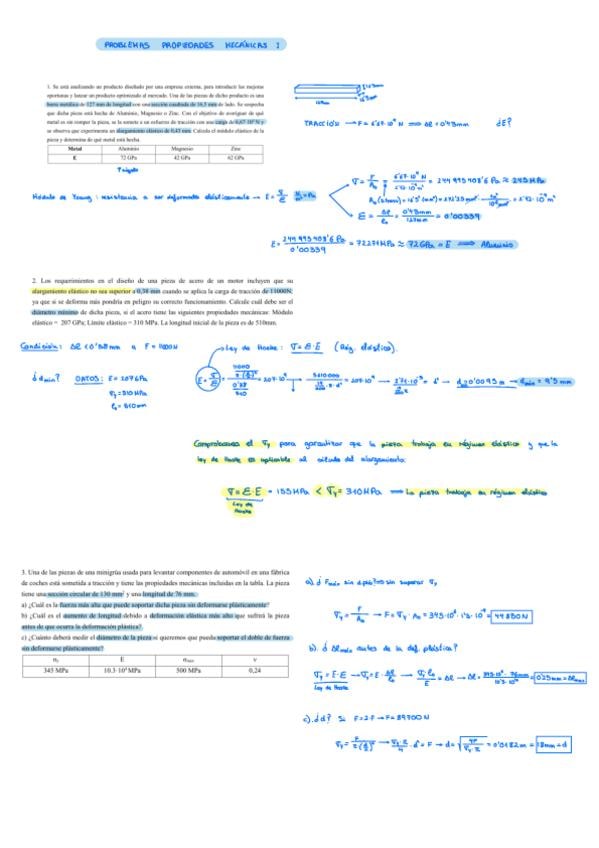 PROBLEMAS PROPIEDADES MECÁNICAS I
1. Se está analizando un producto diseñado por una empresa externa, para introducir las mejoras
oportunas y lanzar un producto optimizado al mercado. Una de las piezas de dicho producto es una
barra metálica de 127 mm de longitud con una sección cuadrada de 16,5 mm de lado. Se sospecha
que dicha pieza está hecha de Aluminio, Magnesio o Zinc. Con el objetivo de averiguar de qué
metal es sin romper la pieza, se la somete a un esfuerzo de tracción con una carga de 6,67·10⁴ N y
se observa que experimenta un alargamiento elástico de 0,43 mm. Calcula el módulo elástico de la
pieza y determina de qué metal está hecha.
Metal Aluminio Magnesio Zinc
E 72 GPa 42 GPa 62 GPa
TRACCIÓN → F = 6'67·10⁴ N ⟹ Δl = 0'43mm ¿E?
Módulo de Young: resistencia a ser deformado elásticamente → E = σ/ε N/m² = Pa
ε = Δl/l₀ = 0'43mm/127mm = 0'00339
≈ 72 GPa = E ⟹ Aluminio
2. Los requerimientos en el diseño de una pieza de acero de un motor incluyen que su
alargamiento elástico no sea superior a 0,38 mm cuando se aplica la carga de tracción de 11000N;
ya que si se deforma más pondría en peligro su correcto funcionamiento. Calcule cuál debe ser el
diámetro mínimo de dicha pieza, si el acero tiene las siguientes propiedades mecánicas: Módulo
elástico = 207 GPa; Límite elástico = 310 MPa. La longitud inicial de la pieza es de 510mm.
Condición: Δl < 0'38 mm a F = 11000N
Ley de Hooke: σ = E·ε (Rég. elástico).
¿d mín? DATOS: E = 207 GPa
σy = 310 MPa
l₀ = 510 mm
d = 0'0095 m → d mín = 9'5 mm
Comprobamos el σy para garantizar que la pieza trabaja en régimen elástico y que la
ley de Hooke es aplicable al cálculo del alargamiento:
σ = E·ε = 155 MPa < σy = 310 MPa ⟹ La pieza trabaja en régimen elástico
Ley de
Hooke
3. Una de las piezas de una minigrúa usada para levantar componentes de automóvil en una fábrica
de coches está sometida a tracción y tiene las propiedades mecánicas incluidas en la tabla. La pieza
tiene una sección circular de 130 mm² y una longitud de 76 mm.
a) ¿Cuál es la fuerza más alta que puede soportar dicha pieza sin deformarse plásticamente?
b) ¿Cuál es el aumento de longitud debido a deformación elástica más alto que sufrirá la pieza
antes de que ocurra la deformación plástica?
c) ¿Cuánto deberá medir el diámetro de la pieza si queremos que pueda soportar el doble de fuerza
sin deformarse plásticamente?
E ν
345 MPa 10.3·10⁴ MPa 500 MPa 0,24
σy = F/A₀ → F = σy·A₀ = 345·10⁶ · 1'3·10⁻⁴ = 44850 N
b). ¿Δl máx antes de la def. plástica?
Ley de Hooke
c). ¿d? Si F = 2·F → F = 89700 N
= 0'0182 m = 18mm = d